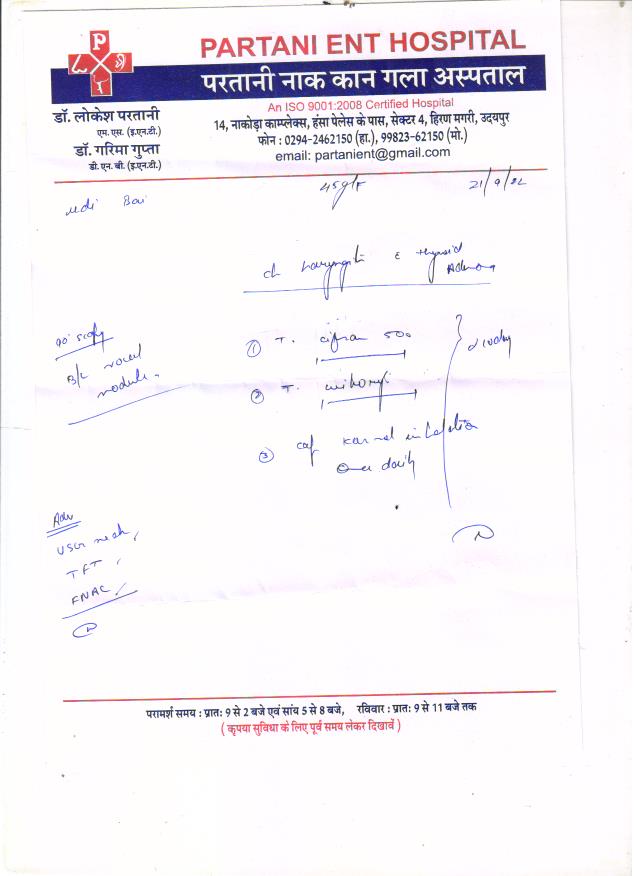 P
PARTANI ENT HOSPITAL
परतानी नाक कान गला अस्पताल
An ISO 9001:2008 Certified Hospital
14, नाकोड़ा काम्प्लेक्स, हंसा पेलेस के पास, सेक्टर 4, हिरण मगरी, उदयपुर
फोन : 0294-2462150 (हा.), 99823-62150 (मो.)
email: partanient@gmail.com
डॉ. लोकेश परतानी
एम. एस. (इ.एन.टी.)
डॉ. गरिमा गुप्ता
डी. एन. बी. (इ.एन.टी.)
Bai
45y/F
ch laryngitis c thyroid
Adenoma
90° scopy
B/L vocal
nodule.
① T. cifran 500
② T.
③ cap Karvol inhalation
Once daily
Adv
USG neck,
TFT,
FNAC
परामर्श समय : प्रातः 9 से 2 बजे एवं सांय 5 से 8 बजे, रविवार : प्रातः 9 से 11 बजे तक
( कृपया सुविधा के लिए पूर्व समय लेकर दिखावें )